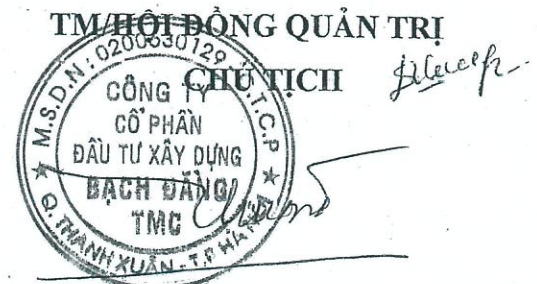 TM/HỘI ĐỒNG QUẢN TRỊ
CHỦ TỊCH
M.S.D.N: 0200630129
C.T.C.P
CÔNG TY
CỔ PHẦN
ĐẦU TƯ XÂY DỰNG
BẠCH ĐẰNG
TMC
Q. THANH XUÂN - T.P HÀ